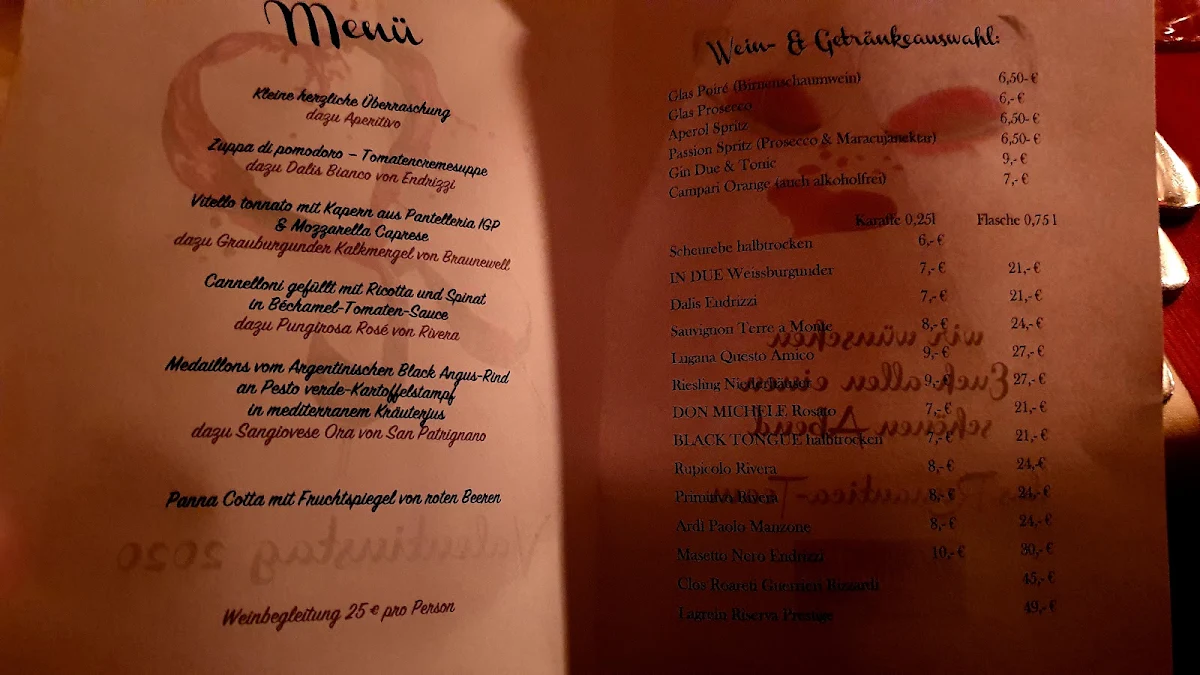 Menü
Kleine herzliche Überraschung
dazu Aperitivo
Zuppa di pomodoro – Tomatencremesuppe
dazu Dalis Bianco von Endrizzi
Vitello tonnato mit Kapern aus Pantelleria IGP
& Mozzarella Caprese
dazu Grauburgunder Kalkmergel von Braunewell
Cannelloni gefüllt mit Ricotta und Spinat
in Béchamel-Tomaten-Sauce
dazu Pungirosa Rosé von Rivera
Medaillons vom Argentinischen Black Angus-Rind
an Pesto verde-Kartoffelstampf
in mediterranem Kräuterjus
dazu Sangiovese Ora von San Patrignano
Panna Cotta mit Fruchtspiegel von roten Beeren
Valentinstag 2020
Weinbegleitung 25 € pro Person
Wein- & Getränkeauswahl:
Glas Poiré (Birnenschaumwein) 6,50-€
Glas Prosecco 6,-€
Aperol Spritz 6,50-€
Passion Spritz (Prosecco & Maracujanektar) 6,50-€
Gin Due & Tonic 9,-€
Campari Orange (auch alkoholfrei) 7,-€
Karaffe 0,25l Flasche 0,75 l
Scheurebe halbtrocken 6,-€
IN DUE Weissburgunder 7,-€ 21,-€
Dalis Endrizzi 7,-€ 21,-€
Sauvignon Terre a Monte 8,-€ 24,-€
Lugana Questo Amico 9,-€ 27,-€
Riesling 9,-€ 27,-€
DON MICHELE Rosato 7,-€ 21,-€
BLACK TONGUE halbtrocken 7,-€ 21,-€
Rupicolo Rivera 8,-€ 24,-€
Primitivo Rivera 8,-€ 24,-€
Ardi Paolo Manzone 8,-€ 24,-€
Masetto Nero Endrizzi 10,-€ 30,-€
Clos Roareti Guerrieri Rizzardi 45,-€
Lagrein Riserva Prestige 49,-€
wir wünschen
Euch allen einen
schönen Abend